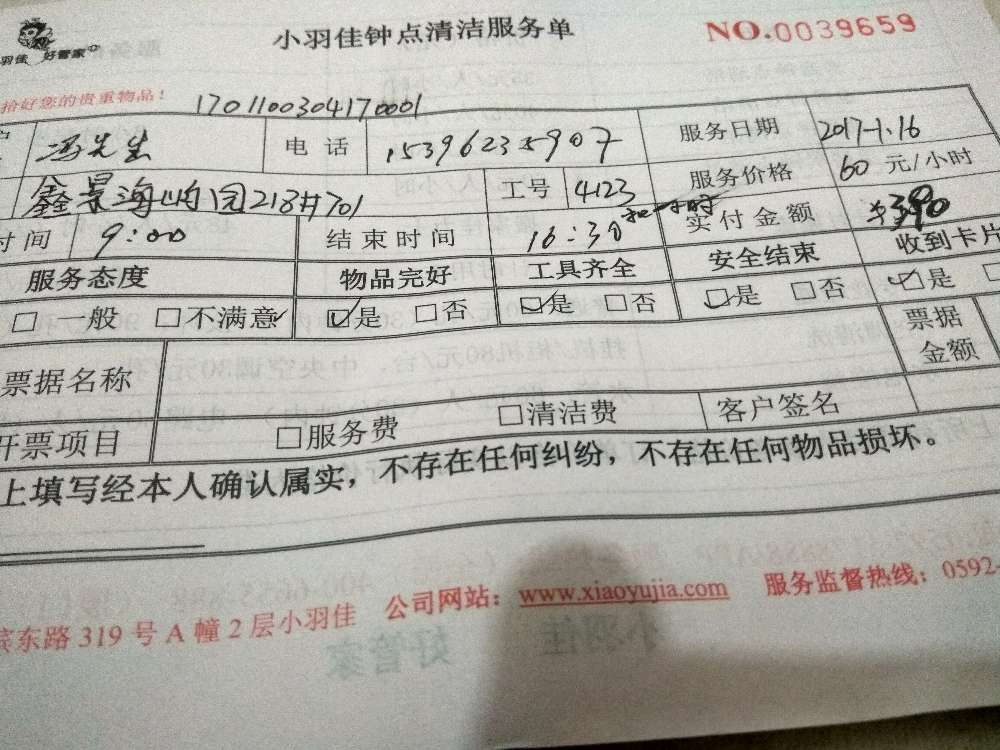 小羽佳钟点清洁服务单
NO.0039659
羽佳 好管家
拾好您的贵重物品！
1701100304170001
冯先生 电话 15396235907 服务日期 2017-1.16
鑫景海屿园218#701 工号 4123 服务价格 60 元/小时
时间 9:00 结束时间 16:30 扣一小时 实付金额 ¥390
服务态度 物品完好 工具齐全 安全结束 收到卡片
□ 一般 □不满意 ☑是 □否 ☑是 □否 ☑是 □否 ☑是
票据名称 票据金额
开票项目 □服务费 □清洁费 客户签名
上填写经本人确认属实，不存在任何纠纷，不存在任何物品损坏。
滨东路 319 号 A 幢 2 层小羽佳 公司网站：www.xiaoyujia.com 服务监督热线：0592-